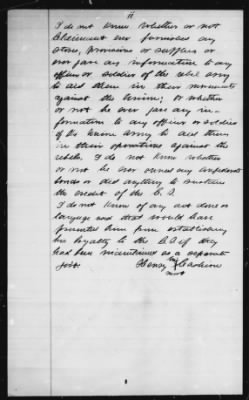 11
I do not know whether or not
Claimant ever furnished any
stores, provisions or supplies or
ever gave any information to any
officer or soldier of the rebel army
to aid them in their movements
against the Union; or whether
or not he ever gave any in-
formation to any officer or soldier
of the Union Army to aid them
in their operations against the
rebels. I do not know whether
or not he ever owned any confederate
bonds or did anything to sustain
the credit of the C. S.
I do not know of any act done or
language used that would have
prevented him from establishing
his loyalty to the C.S. if they
had been maintained as a separate
Henry his
mark